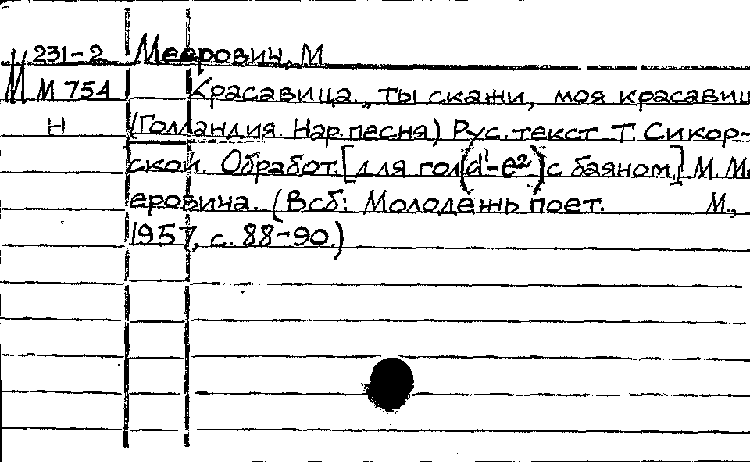 М 231-2 Меерович, М
М 754 Красавица, ты скажи, моя красавиц
Н (Голландия. Нар. песня) Рус. текст Т. Сикор-
ской. Обработ. [для гол. (d¹-e²) с баяном] М. Ме
еровича. (В сб: Молодежь поет. М.,
1957, с. 88-90.)